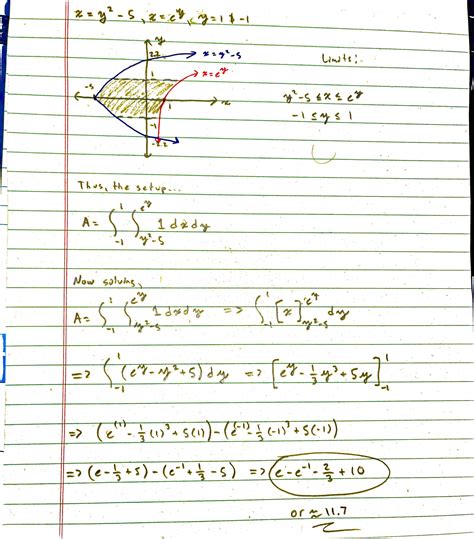 x = y² - 5, x = e^y, y = 1 & -1
y
2.2
x = y² - 5
x = e^y
1
-5
1
x
-1
-2.2
Limits:
y² - 5 ≤ x ≤ e^y
-1 ≤ y ≤ 1
Thus, the setup...
A = ∫_{-1}^{1} ∫_{y²-5}^{e^y} 1 dx dy
Now solving,
A = ∫_{-1}^{1} ∫_{y²-5}^{e^y} 1 dx dy => ∫_{-1}^{1} [x]_{y²-5}^{e^y} dy
=> ∫_{-1}^{1} (e^y - y² + 5) dy => [e^y - 1/3 y³ + 5y]_{-1}^{1}
=> (e^(1) - 1/3 (1)³ + 5(1)) - (e^(-1) - 1/3 (-1)³ + 5(-1))
=> (e - 1/3 + 5) - (e^-1 + 1/3 - 5) => e - e^-1 - 2/3 + 10
or ≈ 11.7